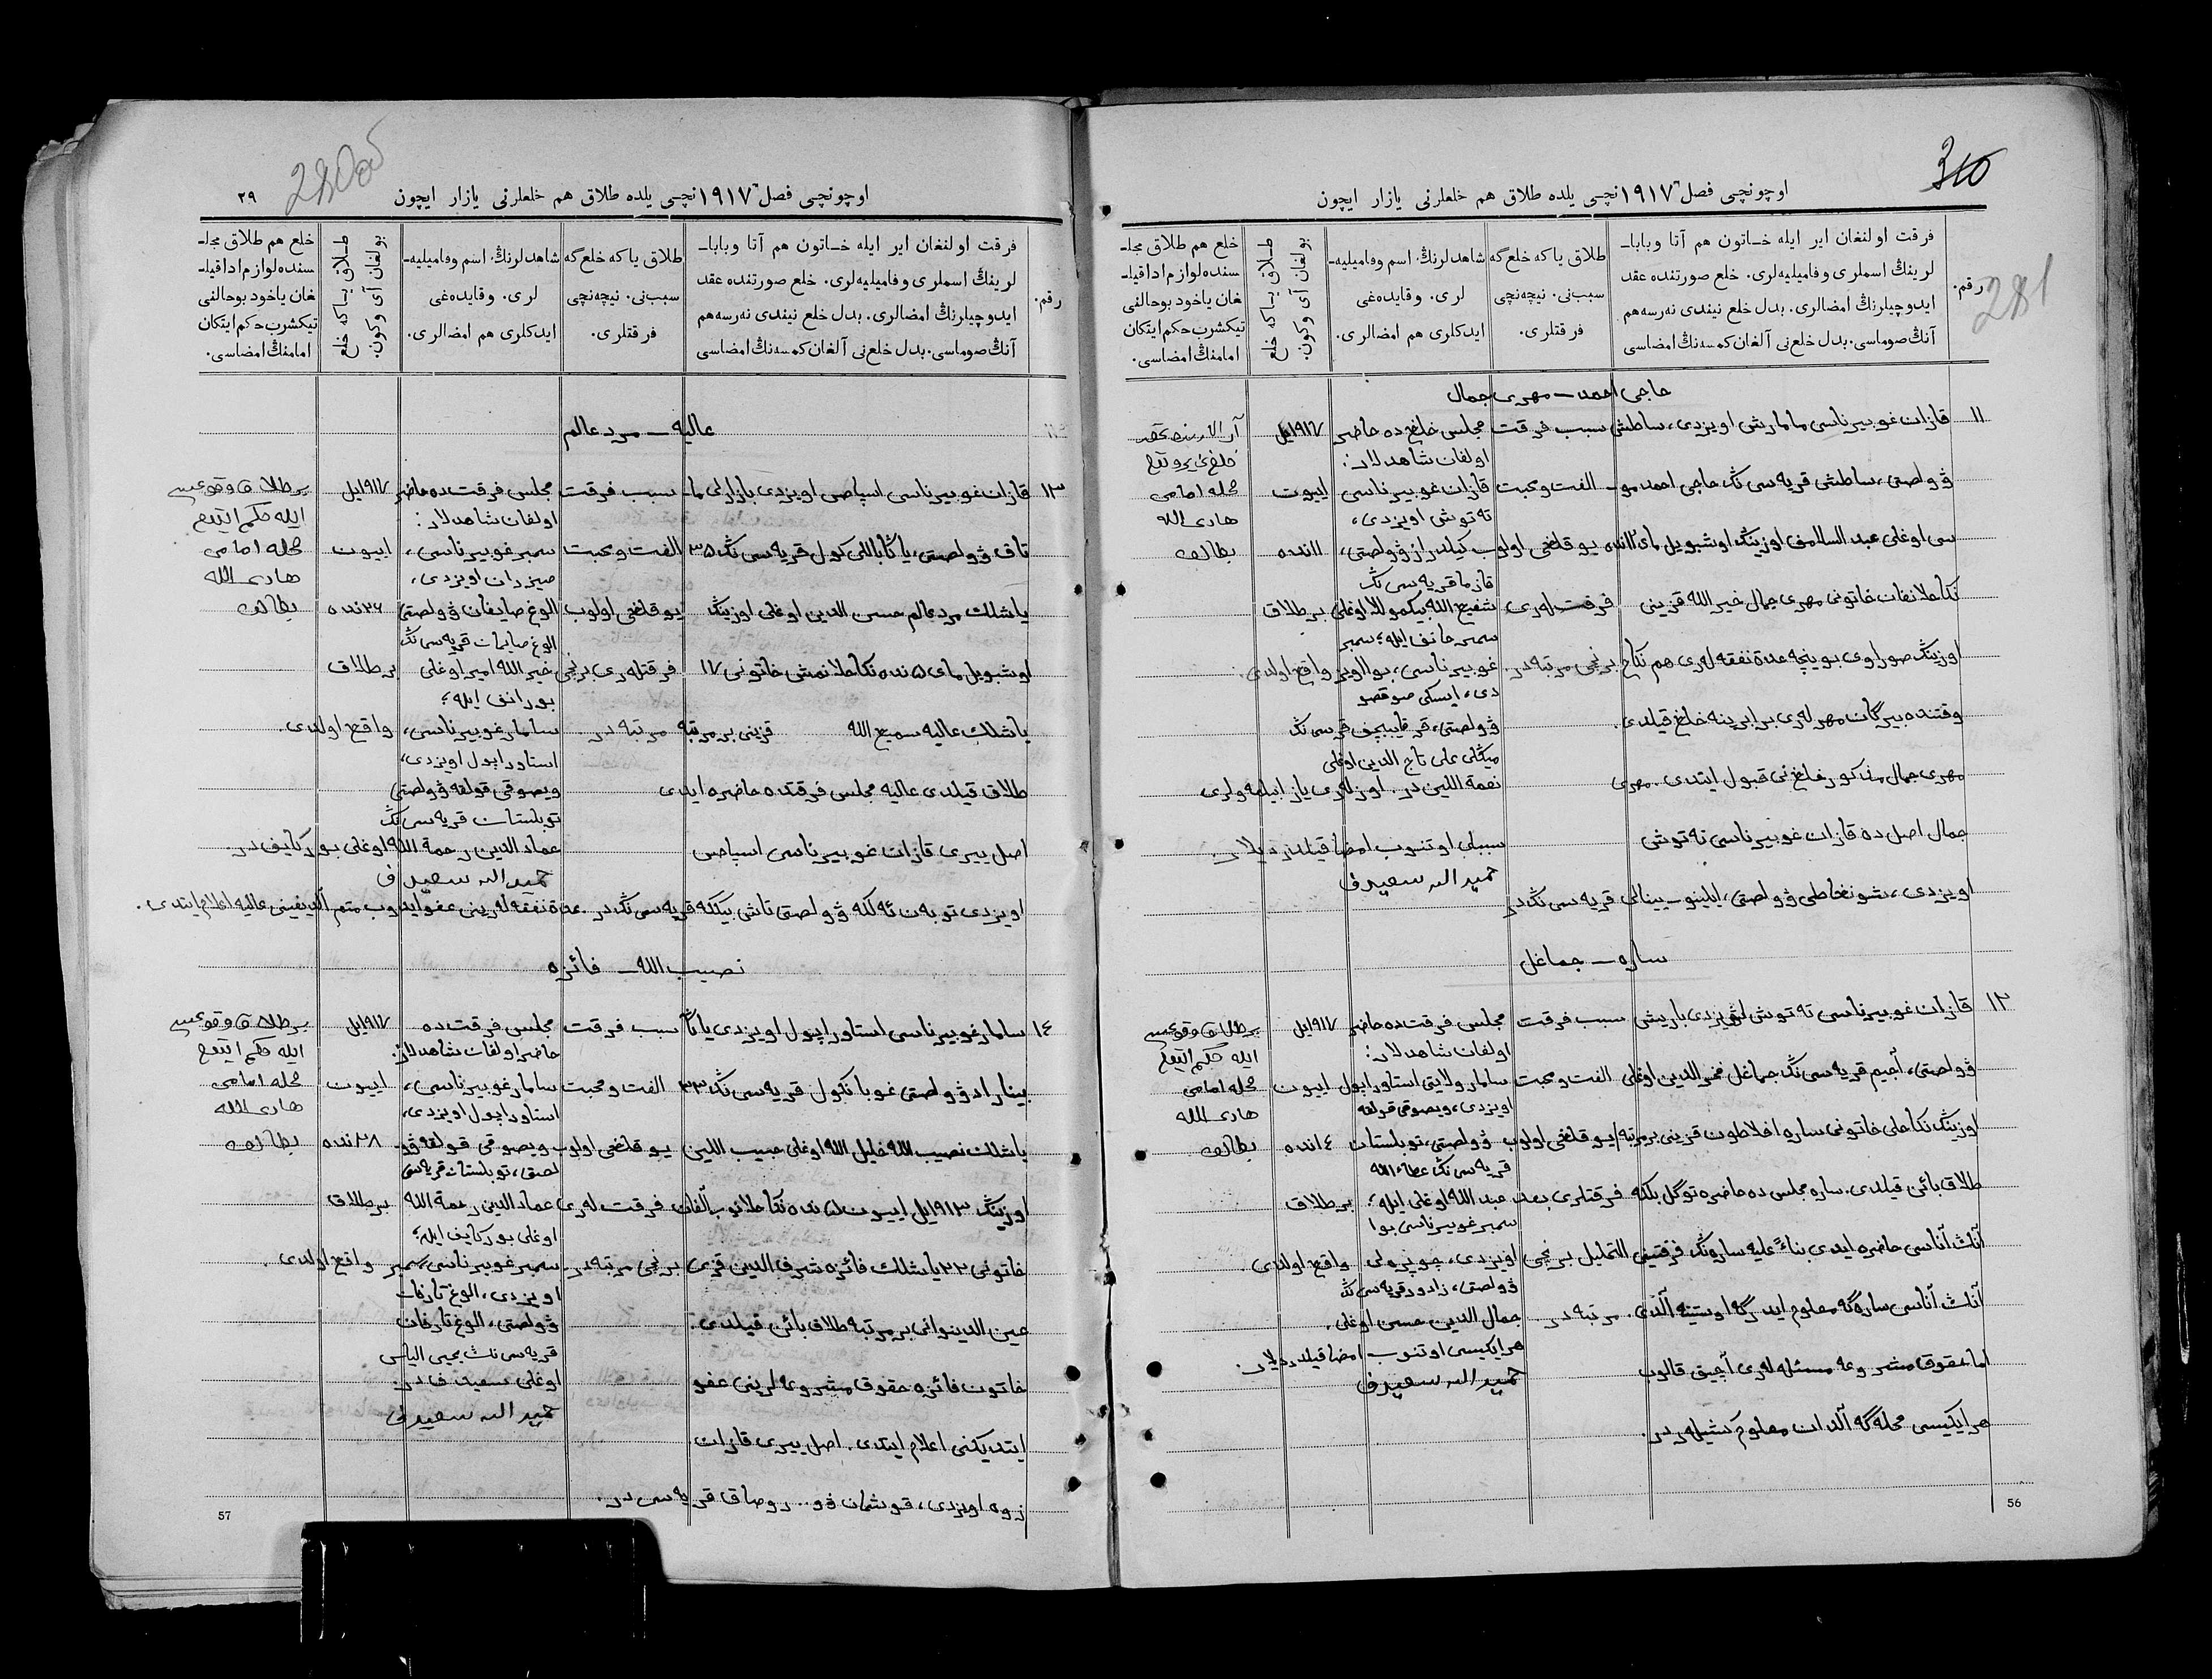 310
281
اوچونچی فصل ١٩١٧ نچی یلده طلاق هم خلعلرنی یازار ایچون
رقم.
فرقت اولنغان ایر ایله خـاتون هم آتا وبابا-
لرینڭ اسملری وفامیلیه‌لری. خلع صورتنده عقد
ایدوچیلرنڭ امضالری. بدل خلع نیندی نەرسەهم
آنڭ صوماسی. بدل خلع‌نی آلغان کمسەنڭ امضاسی
طلاق یاکه خلع‌گه
سبب‌نی. نیچه‌نچی
فرقتلری.
شاهدلرنڭ اسم وفامیلیه-
لری. وقایده‌غی
ایدکلری هم امضالری.
طـلاق یـاکه خلع
بولغان آی وکون.
خلع هم طلاق مجلـ
سنده لوازم ادا قیلـ
غان یاخود بوحالفی
تیکشرب حکم ایتکان
امامنڭ امضاسی.
حاجی احمد – مهری جمال
١١
قازان غوبیرناسی مامادیش اویزدی، ساطش
ڤولصتی، ساطش قریه سی نڭ حاجی احمد مو-
سی اوغلی عبد السلامف اوزینڭ اوشبویل مای ١١نده
نکاحلانغان خاتونی مهری جمال خیر الله قزینی
اوزینڭ صوراوی بوینچه عدة نفقه لەری هم نکاح
وقتنده بیرگان مهر لەری برابرینه خلع قیلدی.
مهری جمال مذکور خلع نی قبول ایتدی. مهری
جمال اصل ده قازان غوبیرناسی ته توش
اویزدی، شونغاطی ڤولصتی، ایلینو- بینالی قریه سی نڭ در
سبب فرقت
الفت ومحبت
یوقلغی اولوب
فرقت لەری
برنچی مرتبه در.
مجلس خلع ده حاضر
اولغان شاهدلار:
قازان غوبیرناسی
ته توش اویزدی،
کیلدراز ڤولصتی،
قازما قریه سی نڭ
شفیع الله بیکموللا اوغلی
سمیرحانف ایله؛ سمبر
غوبیرناسی، بوا اویز
دی، ایسکی صوقصو
ڤولصتی، قرقایبچف قریه سی نڭ
میڭلی علی تاج الدین اوغلی
نعمة اللین در. اوزلەری یازا بیلمەولری
سببلی اوتنوب امضا قیلدردیلار.
حمید الله سعیدف
١٩١٧یل
اییون
١١نده
برطلاق
واقع اولدی.
محله امامی
هادی الله
ساره – جماغل
١٢
قازان غوبیرناسی ته توش اویزدی باریش
ڤولصتی، آجیم قریه سی نڭ جماغل فخر الدین اوغلی
اوزینڭ نکاحلی خاتونی ساره اخلاطون قزینی برمرتبه
طلاق بائن قیلدی. ساره مجلس ده حاضره توگل بلکه
آنڭ آناسی حاضره ایدی بناءً علیه سارەنڭ فرقتینی
آنڭ آناسی ساره گه معلوم ایدرگه اوستینه آلدی.
اما حقوق مشروعه مسئله لەری آچیق قالوب
هر ایکیسی محله گه آلدان معلوم کشیلەر در.
سبب فرقت
الفت ومحبت
یوقلغی اولوب
فرقتلری بعد
التحلیل برنچی
مرتبه در.
مجلس فرقت ده حاضر
اولغان شاهدلار:
سامار ولایتی استاوراپول
اویزدی، ویصوقی قولقه
ڤولصتی، توبلستان
قریه سی نڭ عطاء الله
عبد الله اوغلی ایله؛
سمبر غوبیرناسی بوا
اویزدی، چوپرولی
ڤولصتی، زادور قریه سی نڭ
جمال الدین حسن اوغلی.
هر ایکیسی اوتنوب امضا قیلدردیلار.
حمید الله سعیدف
١٩١٧یل
اییون
١٤نده
برطلاق
واقع اولدی.
برطلاق وقوعی
ایله حکم ایتیم
محله امامی
هادی الله
56
280
٣٩
اوچونچی فصل ١٩١٧ نچی یلده طلاق هم خلعلرنی یازار ایچون
رقم.
فرقت اولنغان ایر ایله خـاتون هم آتا وبابا-
لرینڭ اسملری وفامیلیه‌لری. خلع صورتنده عقد
ایدوچیلرنڭ امضالری. بدل خلع نیندی نەرسەهم
آنڭ صوماسی. بدل خلع‌نی آلغان کمسەنڭ امضاسی
طلاق یاکه خلع‌گه
سبب‌نی. نیچه‌نچی
فرقتلری.
شاهدلرنڭ اسم وفامیلیه-
لری. وقایده‌غی
ایدکلری هم امضالری.
طـلاق یـاکه خلع
بولغان آی وکون.
خلع هم طلاق مجلـ
سنده لوازم ادا قیلـ
غان یاخود بوحالفی
تیکشرب حکم ایتکان
امامنڭ امضاسی.
عالیه – مرد عالم
١٣
قازان غوبیرناسی اسپاصی اویزدی بازارلی ما-
تاق ڤولصتی، یاڭا باللی کول قریه سی نڭ ٣۵
یاشلك مرد عالم حسن الدین اوغلی اوزینڭ
اوشبویل مای ۵ نده نکاحلانمش خاتونی ١٧
یاشلك عالیه سمیع الله قزینی برمرتبه
طلاق قیلدی عالیه مجلس فرقتده حاضره ایدی
اصل ییری قازان غوبیرناسی اسپاصی
اویزدی توبەن ئه لکه ڤولصتی تاش بیلگه قریه سی نڭ در. عدة نفقه لەرینی عفو ایدوب متم آلدیغینی عالیه اعلام ایتدی.
سبب فرقت
الفت ومحبت
یوقلغی اولوب
فرقتلەری برنچی
مرتبه در.
مجلس فرقت ده حاضر
اولغان شاهدلار:
سمبر غوبیرناسی،
صیزران اویزدی،
الوغ صایمان ڤولصتی
الوغ صایمان قریه سی نڭ
خیر الله امیر اوغلی
بورانف ایله؛
سامار غوبیرناسی،
استاوراپول اویزدی،
ویصوقی قولقه ڤولصتی
توبلستان قریه سی نڭ
عماد الدین رحمة الله اوغلی بورکایف در.
حمید الله سعیدف
١٩١٧یل
اییون
٢٦نده
برطلاق
واقع اولدی.
برطلاق وقوعی
ایله حکم ایتیم
محله امامی
هادی الله
نصیب الله – فائزه
١٤
سامار غوبیرناسی استاوراپول اویزدی یاڭا
بینارادڤولصتی غوبانکول قریه سی نڭ ٣٣
یاشلك نصیب الله خلیل الله اوغلی حبیب اللین
خاتونی ٢٢ یاشلك فائزه شرف الدین قزی
عین الدینوانی برمرتبه طلاق بائن قیلدی.
خاتون فائزه حقوق مشروعه لرینی عفو
ایتدیکنی اعلام ایتدی. اصل ییری قازان
زوه اویزدی، قوشمان ڤو.. روصاق قریه سی در.
سبب فرقت
الفت ومحبت
یوقلغی اولوب
فرقت لەری
برنچی مرتبه در.
مجلس فرقت ده
حاضر اولغان شاهدلار:
سامار غوبیرناسی،
استاوراپول اویزدی،
ویصوقی قولقه ڤو-
لصتی، توبلستان قریه سی
عماد الدین رحمة الله
اوغلی بورکایف ایله؛
سمبر غوبیرناسی سمبر
اویزدی، الوغ تارخان
ڤولصتی، الوغ تارخان
قریه سی نڭ یحیی الیاس
اوغلی سعیدف در.
حمید الله سعیدف
١٩١٧یل
اییون
٢٨نده
برطلاق
واقع اولدی.
برطلاق وقوعی
ایله حکم ایتیم
محله امامی
هادی الله
57